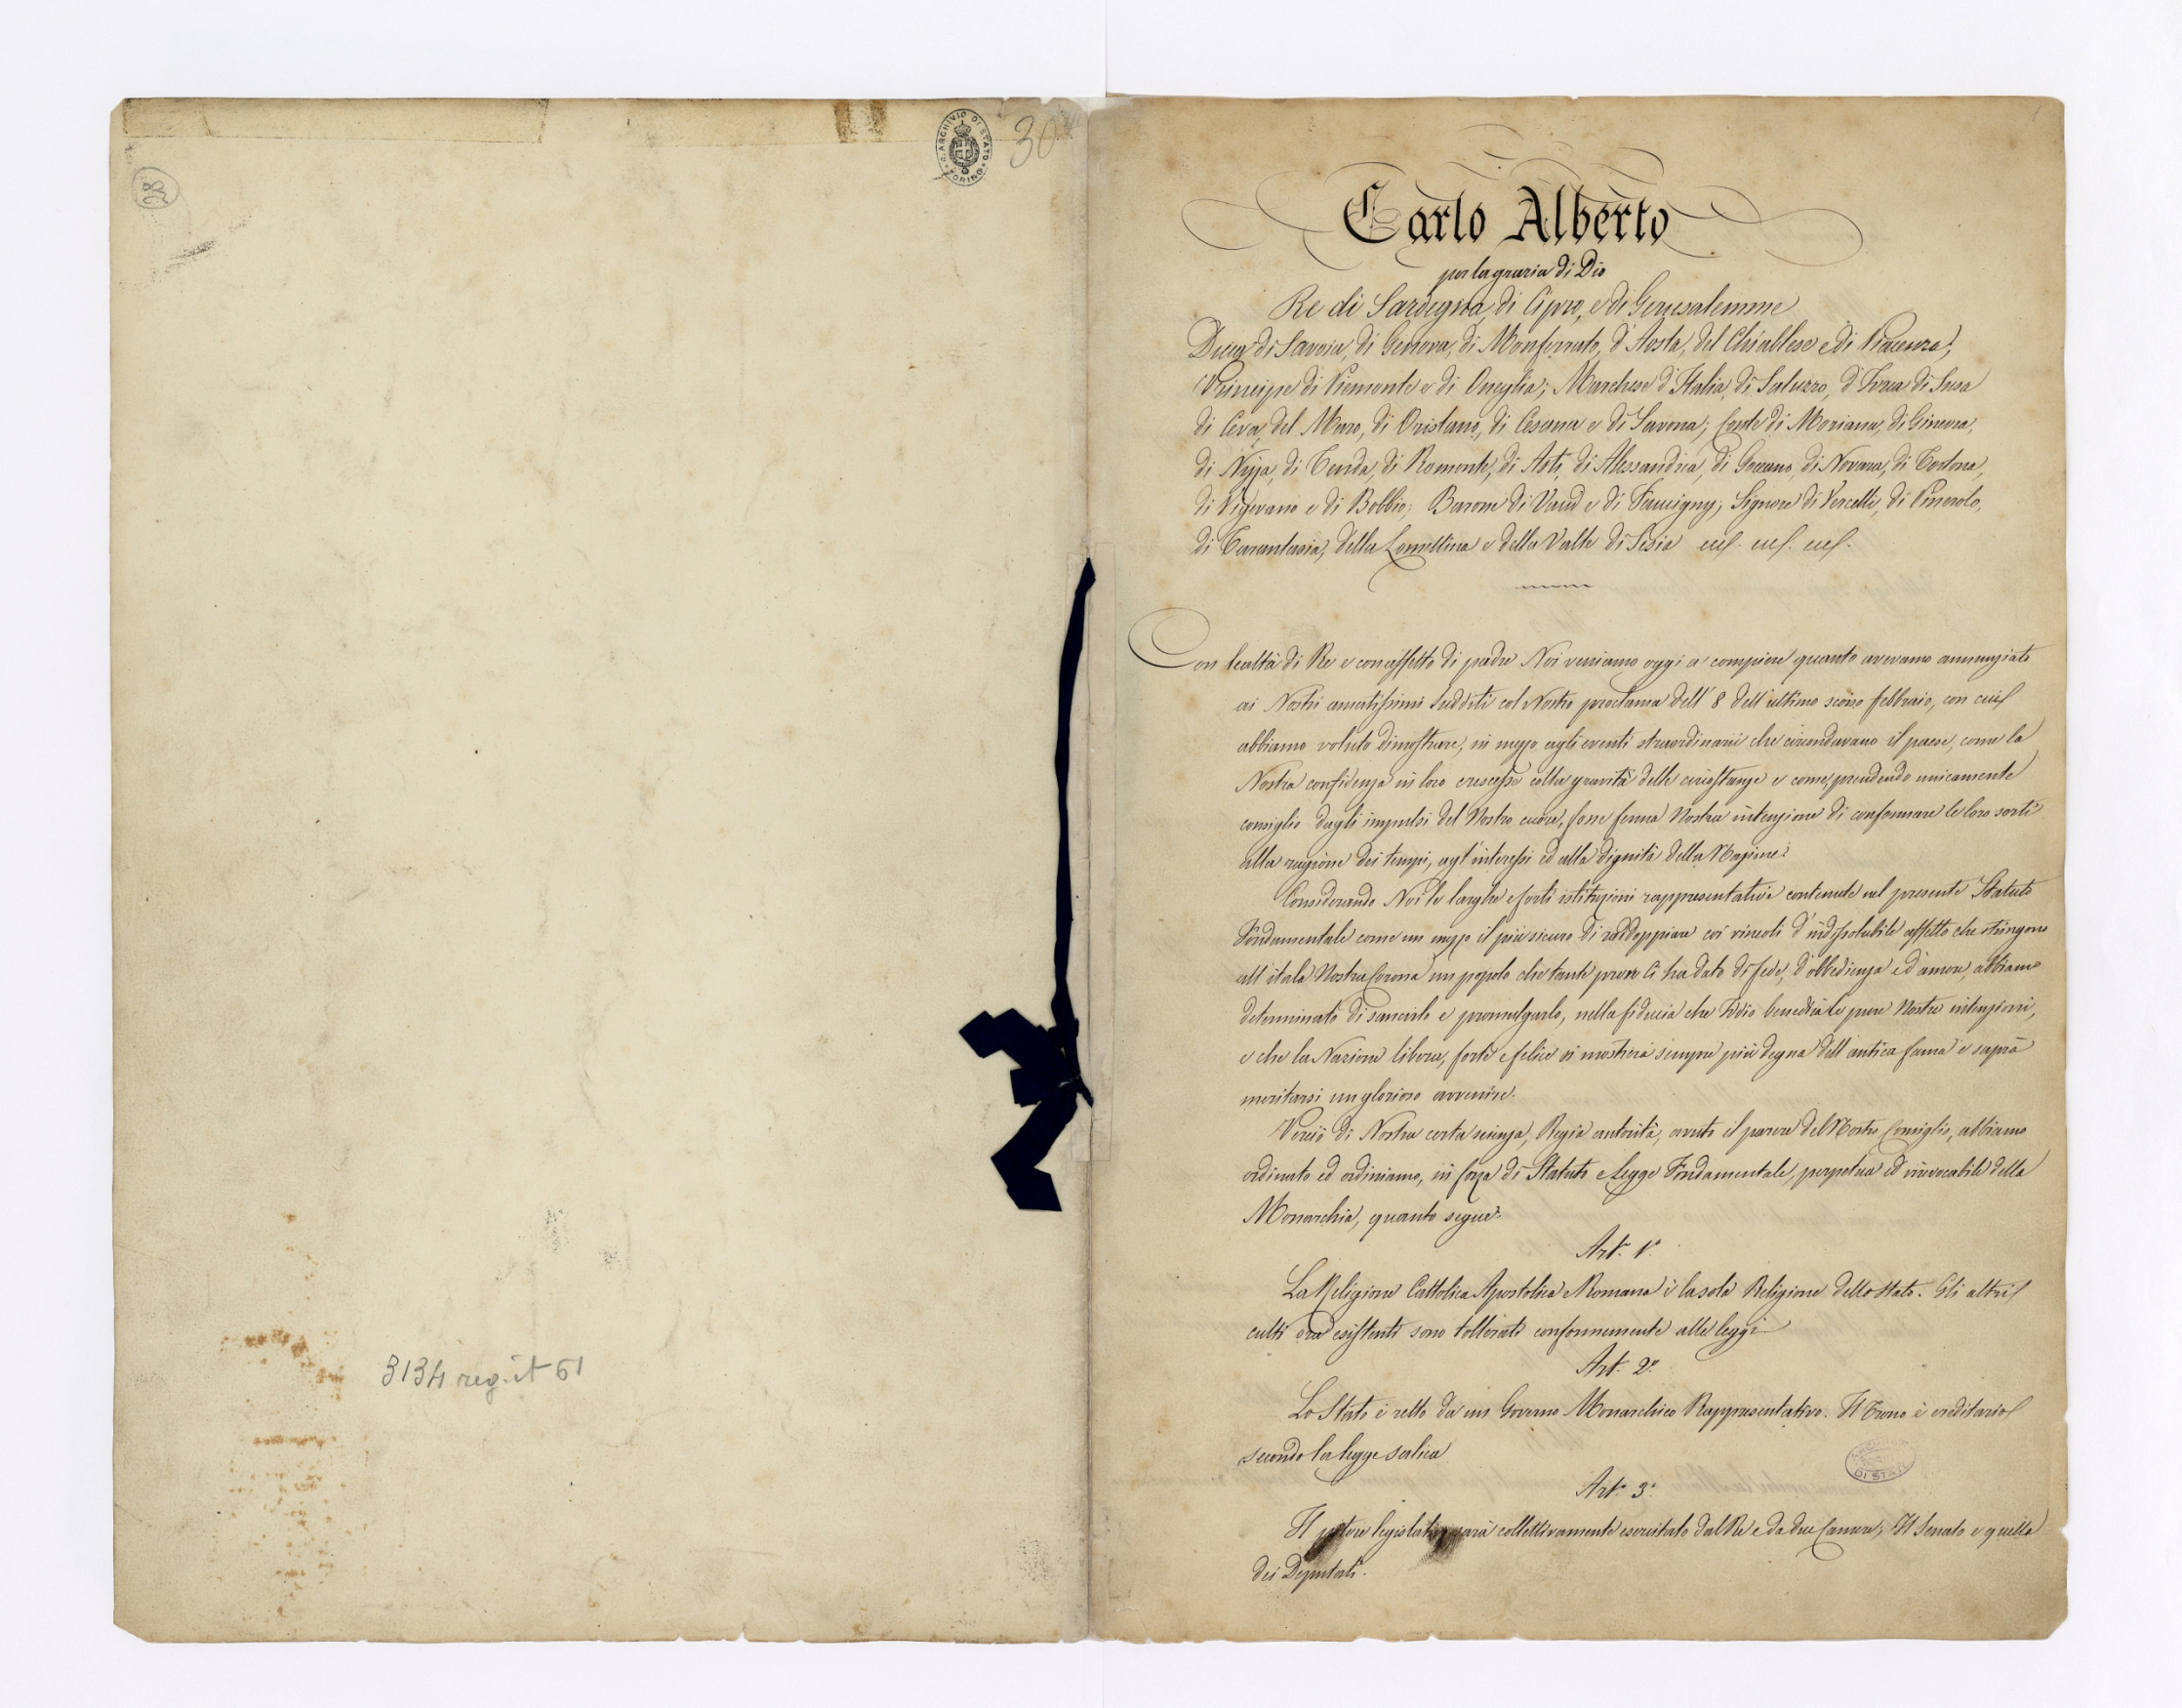 R. ARCHIVIO DI STATO
TORINO
30
3134 reg. it 61
Carlo Alberto
per la grazia di Dio
Re di Sardegna, di Cipro, e di Gerusalemme
Duca di Savoia, di Genova, di Monferrato, d'Aosta, del Chiablese e di Piacenza;
Principe di Piemonte e di Oneglia; Marchese d'Italia, di Saluzzo, d'Ivrea di Susa
di Ceva, del Maro, di Oristano, di Cesana e di Savona; Conte di Moriana, di Ginevra,
di Nizza, di Tenda, di Romonte, di Asti, di Alessandria, di Goceano, di Novara, di Tortona,
di Vigevano e di Bobbio; Barone di Vaud e di Faucigny; Signore di Vercelli, di Pinerolo,
di Tarantasia, della Lomellina e della Valle di Sesia ecc. ecc. ecc.
Con lealtà di Re e con affetto di padre Noi veniamo oggi a compiere quanto avevamo annunziato
ai Nostri amatissimi sudditi col Nostro proclama dell'8 dell'ultimo scorso febbraio, con cui
abbiamo voluto dimostrare, in mezzo agli eventi straordinarii che circondavano il paese, come la
Nostra confidenza in loro crescesse colla gravità delle circostanze e come, prendendo unicamente
consiglio dagli impulsi del Nostro cuore, fosse ferma Nostra intenzione di conformare le loro sorti
alla ragione dei tempi, agl'interessi ed alla dignità della Nazione.
Considerando Noi le larghe e forti istituzioni rappresentative contenute nel presente Statuto
Fondamentale come un mezzo il più sicuro di raddoppiare coi vincoli d'indissolubile affetto che stringono
all'itala Nostra Corona un popolo che tante prove Ci ha dato di fede, d'obbedienza e d'amore, abbiamo
determinato di sancirlo e promulgarlo, nella fiducia che Iddio benedirà le pure Nostre intenzioni,
e che la Nazione libera, forte e felice si mostrerà sempre più degna dell'antica fama e saprà
meritarsi un glorioso avvenire.
Perciò di Nostra certa scienza, Regia autorità, avuto il parere del Nostro Consiglio, abbiamo
ordinato ed ordiniamo, in forza di Statuto e Legge Fondamentale, perpetua ed irrevocabile della
Monarchia, quanto segue:
Art. 1º
La Religione Cattolica Apostolica e Romana è la sola Religione dello Stato. Gli altri
culti ora esistenti sono tollerati conformemente alle leggi
Art. 2º
Lo Stato è retto da un Governo Monarchico Rappresentativo. Il Trono è ereditario
secondo la legge salica
Art. 3º
Il potere legislativo sarà collettivamente esercitato dal Re e da due Camere; Il Senato e quella
dei Deputati.
DI STATO